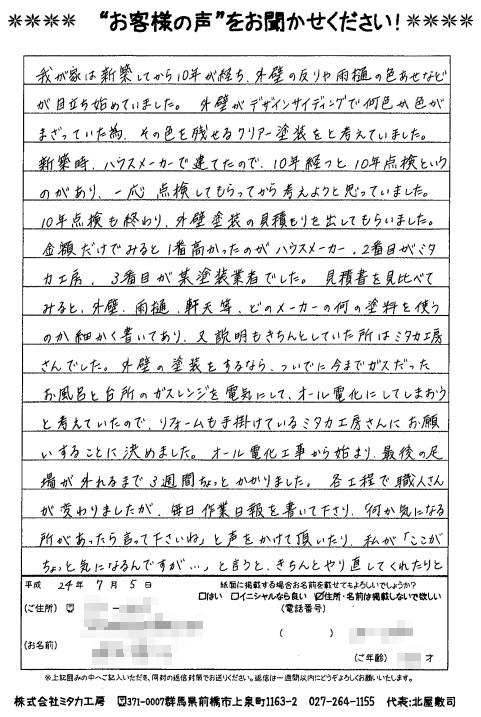 ＊＊＊＊ “お客様の声”をお聞かせください！＊＊＊＊
我が家は新築してから10年が経ち、外壁の反りや雨樋の色あせなど
が目立ち始めていました。 外壁がデザインサイディングで何色か色が
まざっていた為、その色を残せるクリアー塗装をと考えていました。
新築時、ハウスメーカーで建てたので、10年経つと10年点検という
のがあり、一応点検してもらってから考えようと思っていました。
10年点検も終わり、外壁塗装の見積もりを出してもらいました。
金額だけでみると1番高かったのがハウスメーカー、2番目がミタ
カ工房、3番目が某塗装業者でした。 見積書を見比べて
みると、外壁、雨樋、軒天等、どのメーカーの何の塗料を使う
のか細かく書いてあり、又説明もきちんとしていた所はミタカ工房
さんでした。 外壁の塗装をするなら、ついでに今までガスだった
お風呂と台所のガスレンジを電気にして、オール電化にしてしまおう
と考えていたので、リフォームも手掛けているミタカ工房さんにお願
いすることに決めました。 オール電化工事から始まり、最後の足
場が外れるまで3週間ちょっとかかりました。 各工程で職人さん
が変わりましたが、毎日作業日報を書いて下さり、「何か気になる
所があったら言って下さいね」と声をかけて頂いたり、私が「ここが
ちょっと気になるんですが…」と言うと、きちんとやり直してくれたりと
平成 24年 7月 5日 紙面に掲載する場合お名前を載せてもよろしいでしょうか？
□はい □イニシャルなら良い ☑住所・名前は掲載しないで欲しい
(ご住所) 〒 (電話番号)
( )
(お名前)
(ご年齢) 才
※上記囲みの中へご記入いただき、同封の返信封筒でお送りください。返信は一週間以内にどうぞよろしくお願いいたします。
株式会社ミタカ工房 〒371-0007群馬県前橋市上泉町1163-2 027-264-1155 代表:北屋敷司